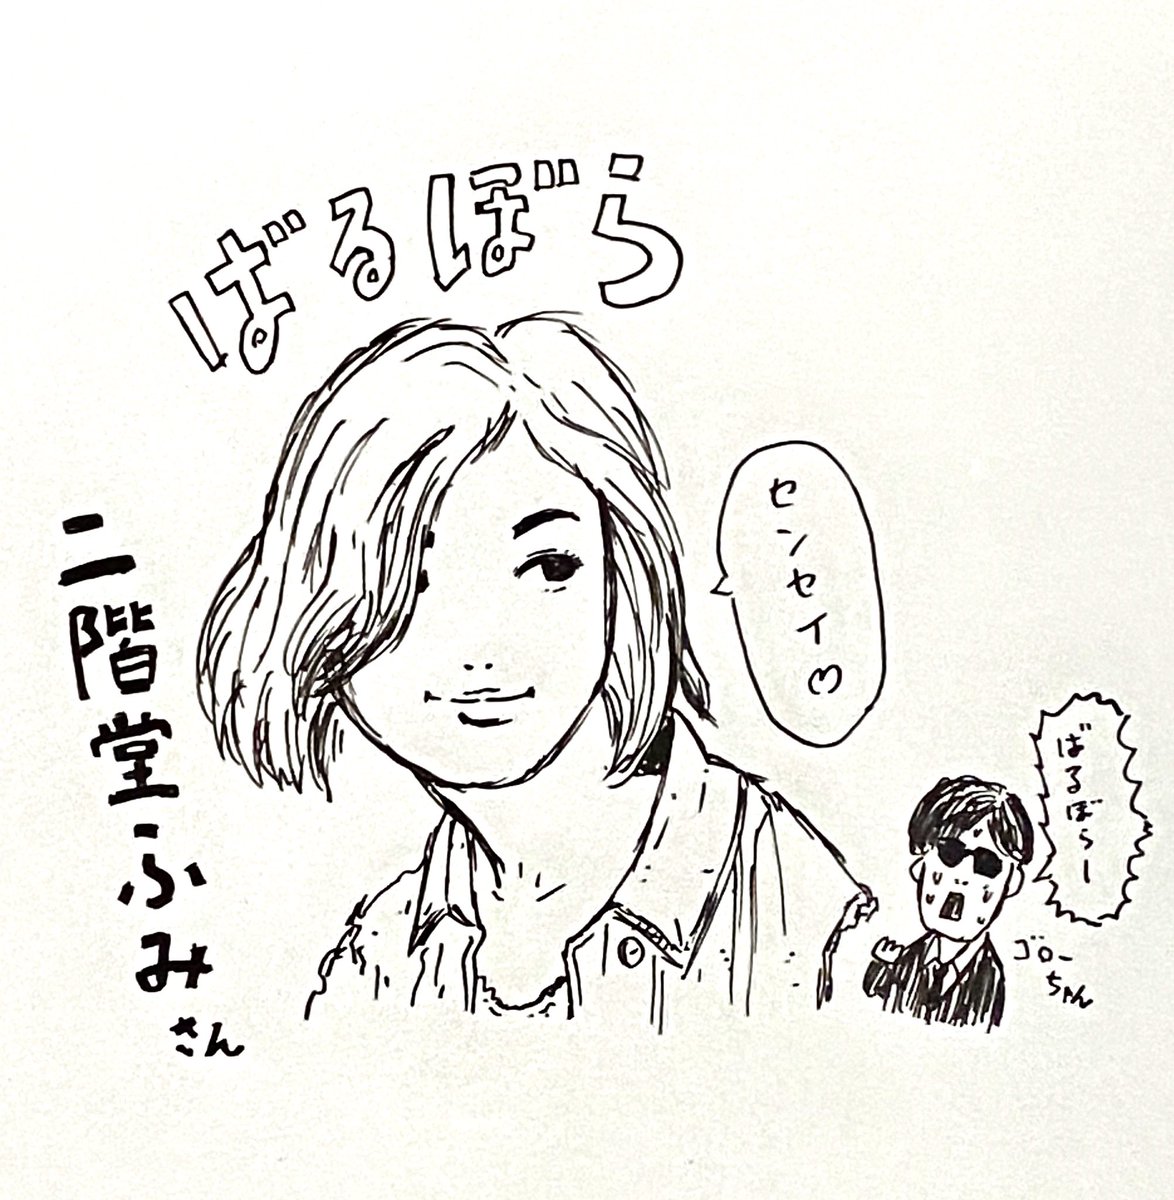 ばるぼら
二階堂ふみさん
センセイ♡
ばるぼらー
ゴローちゃん